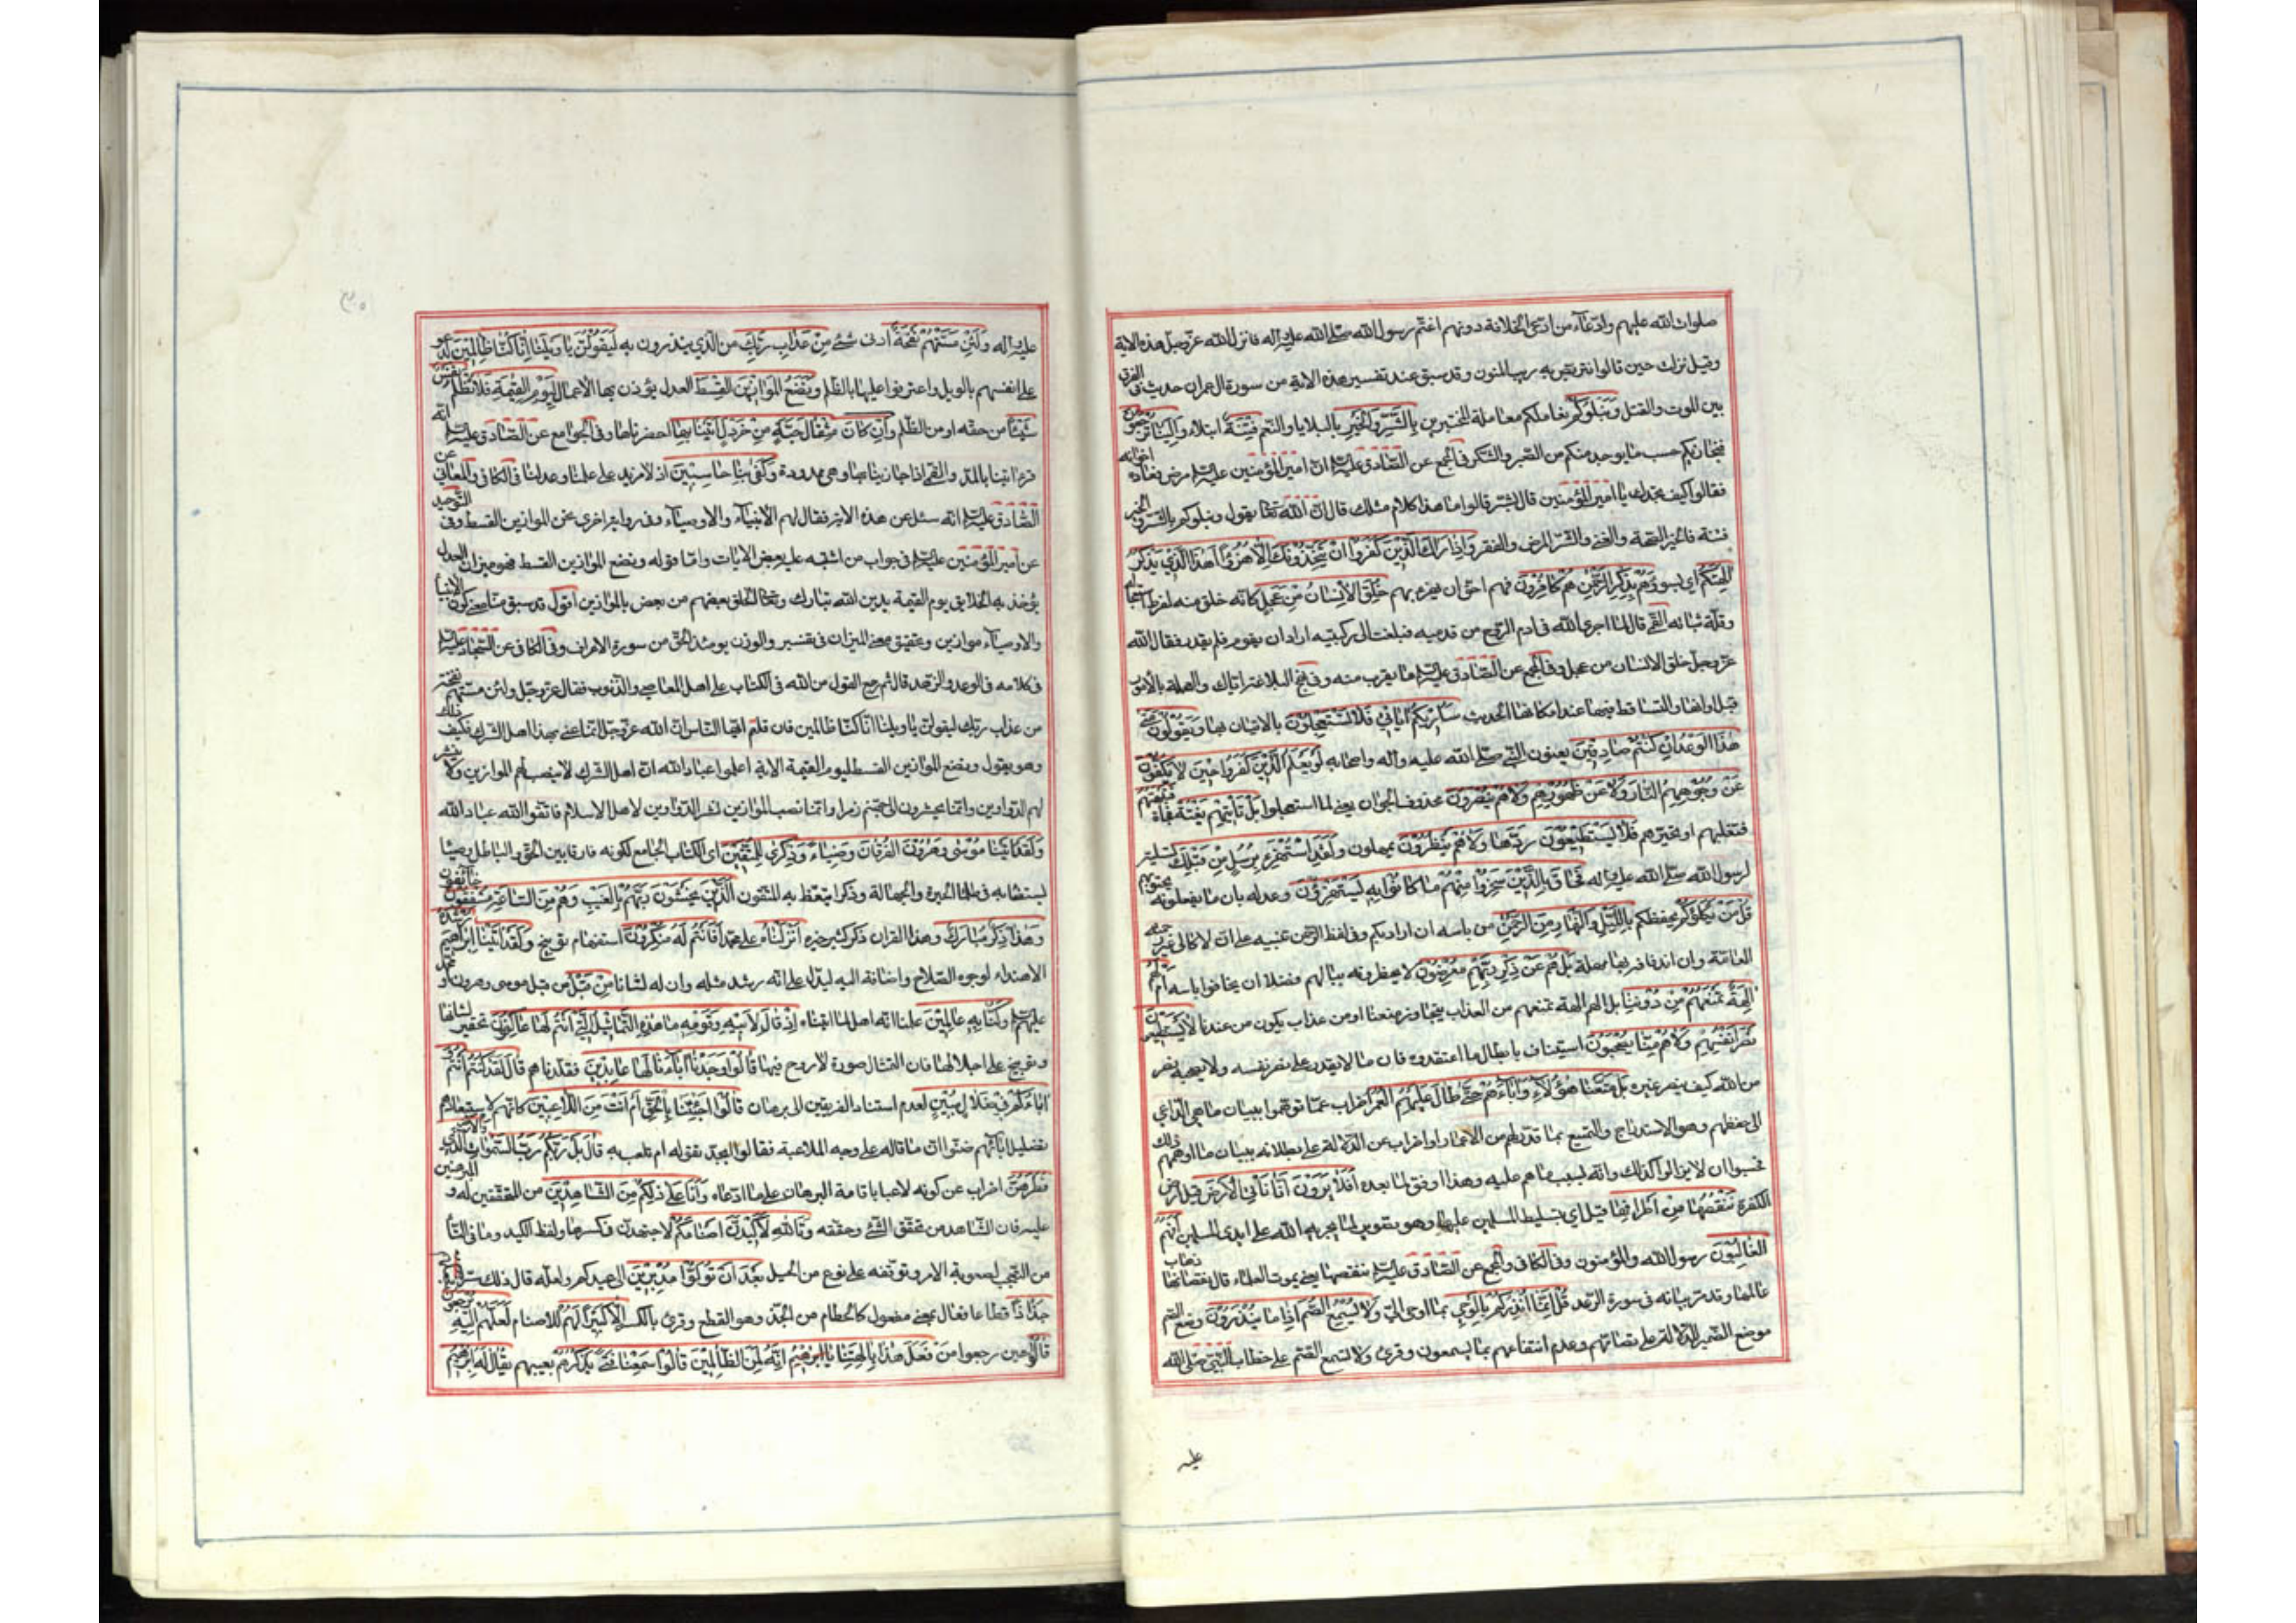 صلوات الله عليهم وادعاء من ادعى الخلافة دونهم اغتم رسول الله صلى الله عليه وآله فانزل الله عز وجل هذه الاية
وقيل نزلت حين قالوا نتربص به ريب المنون وقد سبق عند تفسير هذه الاية من سورة ال عمران حديث في الفرق
بين الموت والقتل وَنَبْلُوكُمْ نعاملكم معاملة المختبرين بِالشَّرِّ وَالْخَيْرِ بالبلايا والنعم فِتْنَةً ابتلاء وَإِلَيْنَا تُرْجَعُونَ
فنجازيكم حسب ما يوجد منكم من الصبر والشكر في المجمع عن الصادق عليه السلم ان امير المؤمنين عليه السلم مرض فعاده اخوانه
فقالوا كيف نجدك يا امير المؤمنين قال بشر قالوا ما هذا كلام مثلك قال ان الله تعالى يقول ونبلوكم بالشر والخير
فتنة فالخير الصحة والغنى والشر المرض والفقر وَإِذَا رَآكَ الَّذِينَ كَفَرُوا إِنْ يَتَّخِذُونَكَ إِلَّا هُزُوًا أَهَذَا الَّذِي يَذْكُرُ
آلِهَتَكُمْ اي بسوء وَهُمْ بِذِكْرِ الرَّحْمٰنِ هُمْ كَافِرُونَ فهم احق ان يهزء بهم خُلِقَ الْإِنْسَانُ مِنْ عَجَلٍ كانه خلق منه لفرط استعجاله
وقلة ثباته القمي قال لما اجرى الله في ادم الروح من قدميه فبلغت الى ركبتيه اراد ان يقوم فلم يقدر فقال الله
عز وجل خلق الانسان من عجل وفي المجمع عن الصادق عليه السلم ما يقرب منه وفي نهج البلاغة اياك والعجلة بالامور
قبل اوانها والتساقط فيها عند امكانها الحديث سَأُرِيكُمْ آيَاتِي فَلَا تَسْتَعْجِلُونِ بالاتيان بها وَيَقُولُونَ مَتَى
هٰذَا الْوَعْدُ إِنْ كُنْتُمْ صَادِقِينَ يعنون النبي صلى الله عليه وآله واصحابه لَوْ يَعْلَمُ الَّذِينَ كَفَرُوا حِينَ لَا يَكُفُّونَ
عَنْ وُجُوهِهِمُ النَّارَ وَلَا عَنْ ظُهُورِهِمْ وَلَا هُمْ يُنْصَرُونَ محذوف الجواب يعني لما استعجلوا بَلْ تَأْتِيهِمْ بَغْتَةً فجأة فَتَبْهَتُهُمْ
فتغلبهم او تحيرهم فَلَا يَسْتَطِيعُونَ رَدَّهَا وَلَا هُمْ يُنْظَرُونَ يمهلون وَلَقَدِ اسْتُهْزِئَ بِرُسُلٍ مِنْ قَبْلِكَ تسلية
لرسول الله صلى الله عليه وآله فَحَاقَ بِالَّذِينَ سَخِرُوا مِنْهُمْ مَا كَانُوا بِهِ يَسْتَهْزِؤُنَ وعد له بان ما يفعلونه يحيق بهم
قُلْ مَنْ يَكْلَؤُكُمْ يحفظكم بِاللَّيْلِ وَالنَّهَارِ مِنَ الرَّحْمٰنِ من باسه ان ارادكم وفي لفظ الرحمن تنبيه على ان لا كالئ غير رحمته
العامة وان اندفاعه بها مهلة بَلْ هُمْ عَنْ ذِكْرِ رَبِّهِمْ مُعْرِضُونَ لا يخطرونه ببالهم فضلا ان يخافوا باسه أَمْ لَهُمْ
آلِهَةٌ تَمْنَعُهُمْ مِنْ دُونِنَا بل الهم الهة تمنعهم من العذاب يتجاوز منعنا او من عذاب يكون من عندنا لَا يَسْتَطِيعُونَ
نَصْرَ أَنْفُسِهِمْ وَلَا هُمْ مِنَّا يُصْحَبُونَ استيناف بابطال ما اعتقدوه فان ما لا يقدر على نصر نفسه ولا يصحبه نصر
من الله كيف ينصر غيره بَلْ مَتَّعْنَا هٰؤُلَاءِ وَآبَاءَهُمْ حَتَّى طَالَ عَلَيْهِمُ الْعُمُرُ اضراب عما توهموا ببيان ما هو الداعي
الى حفظهم وهو الاستدراج والتمتيع بما قدر لهم من الاعمار او اضراب عن الدلالة على بطلانه ببيان ما اوهمهم ذلك
فحسبوا ان لا يزالوا كذلك وانه بسبب ما هم عليه وهذا اوفق لما بعده أَفَلَا يَرَوْنَ أَنَّا نَأْتِي الْأَرْضَ قيل ارض
الكفرة نَنْقُصُهَا مِنْ أَطْرَافِهَا قيل اي بتسليط المسلمين عليها وهو تصوير لما يجريه الله على ايدي المسلمين أَفَهُمُ
الْغَالِبُونَ رسول الله والمؤمنون وفي الكافي والمجمع عن الصادق عليه السلم ننقصها يعني بموت العلماء قال نقصانها ذهاب
عالمها وقد مر بيانه في سورة الرعد قُلْ إِنَّمَا أُنْذِرُكُمْ بِالْوَحْيِ بما اوحي الي وَلَا يَسْمَعُ الصُّمُّ إِذَا مَا يُنْذَرُونَ وضع الصم
موضع الضمير للدلالة على تصامهم وعدم انتفاعهم بما يسمعون وقرئ ولا تسمع الصم على خطاب النبي صلى الله
عليه
عليه وآله وَلَئِنْ مَسَّتْهُمْ نَفْحَةٌ ادنى شئ مِنْ عَذَابِ رَبِّكَ من الذي ينذرون به لَيَقُولُنَّ يَا وَيْلَنَا إِنَّا كُنَّا ظَالِمِينَ لدعوا
على انفسهم بالويل واعترفوا عليها بالظلم وَنَضَعُ الْمَوَازِينَ الْقِسْطَ العدل يوزن بها الاعمال لِيَوْمِ الْقِيٰمَةِ فَلَا تُظْلَمُ نَفْسٌ
شَيْئًا من حقه او من الظلم وَإِنْ كَانَ مِثْقَالَ حَبَّةٍ مِنْ خَرْدَلٍ أَتَيْنَا بِهَا احضرناها وفي الجوامع عن الصادق عليه السلم انه
قرء اتينا بالمد والقمي اي جازينا بها وهي ممدودة وَكَفَى بِنَا حَاسِبِينَ اذ لا مزيد على علمنا وعدلنا في الكافي والمعاني عن
الصادق عليه السلم انه سئل عن هذه الاية فقال لهم الانبياء والاوصياء وفي رواية اخرى نحن الموازين القسط وفي التوحيد
عن امير المؤمنين عليه السلم في جواب من اشتبه عليه بعض الايات واما قوله ونضع الموازين القسط فهو ميزان العدل
يؤخذ به الخلايق يوم القيمة يدين الله تبارك وتعالى الخلق بعضهم من بعض بالموازين اقول قد سبق منا معنى كون الانبياء
والاوصياء موازين وتحقيق معنى الميزان في تفسير والوزن يومئذ الحق من سورة الاعراف وفي الكافي عن السجاد عليه السلم
في كلامه في الوعظ والزهد قال ثم رجع القول من الله في الكتاب على اهل المعاصي والذنوب فقال عز وجل ولئن مستهم نفحة
من عذاب ربك ليقولن يا ويلنا انا كنا ظالمين فان قلتم ايها الناس ان الله عز وجل انما عنى بهذا اهل الشرك فكيف ذلك
وهو يقول ونضع الموازين القسط ليوم القيمة الاية اعلموا عباد الله ان اهل الشرك لا ينصب لهم الموازين ولا ينشر
لهم الدواوين وانما يحشرون الى جهنم زمرا وانما نصب الموازين ونشر الدواوين لاهل الاسلام فاتقوا الله عباد الله
وَلَقَدْ آتَيْنَا مُوسَى وَهٰرُونَ الْفُرْقَانَ وَضِيَاءً وَذِكْرًى لِلْمُتَّقِينَ اي الكتاب الجامع لكونه فارقا بين الحق والباطل وضياء
يستضاء به في ظلمات الحيرة والجهالة وذكرا يتعظ به المتقون الَّذِينَ يَخْشَوْنَ رَبَّهُمْ بِالْغَيْبِ وَهُمْ مِنَ السَّاعَةِ مُشْفِقُونَ خائفون
وَهٰذَا ذِكْرٌ مُبَارَكٌ وهذا القران ذكر كثير خيره أَنْزَلْنَاهُ على محمد أَفَأَنْتُمْ لَهُ مُنْكِرُونَ استفهام توبيخ وَلَقَدْ آتَيْنَا إِبْرَاهِيمَ رُشْدَهُ
الاهتداء لوجوه الصلاح واضافة اليه ليدل على انه رشد مثله وان له لشانا مِنْ قَبْلُ من قبل موسى وهرون او محمد
عليهم السلم وَكُنَّا بِهِ عَالِمِينَ علمنا انه اهل لما اتيناه إِذْ قَالَ لِأَبِيهِ وَقَوْمِهِ مَا هٰذِهِ التَّمَاثِيلُ الَّتِي أَنْتُمْ لَهَا عَاكِفُونَ تحقير لشانها
وتوبيخ على اجلالها فان التمثال صورة لا روح فيها قَالُوا وَجَدْنَا آبَاءَنَا لَهَا عَابِدِينَ فقلدناهم قَالَ لَقَدْ كُنْتُمْ أَنْتُمْ وَ
آبَاؤُكُمْ فِي ضَلَالٍ مُبِينٍ لعدم استناد الفريقين الى برهان قَالُوا أَجِئْتَنَا بِالْحَقِّ أَمْ أَنْتَ مِنَ اللَّاعِبِينَ كانهم لاستبعادهم
تضليل ابائهم ظنوا ان ما قاله على وجه الملاعبة فقالوا ابجد تقوله ام تلعب به قَالَ بَلْ رَبُّكُمْ رَبُّ السَّمٰوَاتِ وَالْأَرْضِ الَّذِي
فَطَرَهُنَّ اضراب عن كونه لاعبا باقامة البرهان على ما ادعاه وَأَنَا عَلَى ذٰلِكُمْ مِنَ الشَّاهِدِينَ من المتحققين له والمبرهنين
عليه فان الشاهد من تحقق الشئ وحققه وَتَاللهِ لَأَكِيدَنَّ أَصْنَامَكُمْ لاجتهدن في كسرها ولفظ الكيد وما في التاء
من التعجب لصعوبة الامر وتوقفه على نوع من الحيل بَعْدَ أَنْ تُوَلُّوا مُدْبِرِينَ الى عيدكم ولعله قال ذلك سرا فَجَعَلَهُمْ
جُذَاذًا قطاعا فعال بمعنى مفعول كالحطام من الجذ وهو القطع وقرئ بالكسر إِلَّا كَبِيرًا لَهُمْ للاصنام لَعَلَّهُمْ إِلَيْهِ يَرْجِعُونَ
قَالُوا حين رجعوا مَنْ فَعَلَ هٰذَا بِآلِهَتِنَا إِنَّهُ لَمِنَ الظَّالِمِينَ قَالُوا سَمِعْنَا فَتًى يَذْكُرُهُمْ يعيبهم يُقَالُ لَهُ إِبْرٰهِيمُ